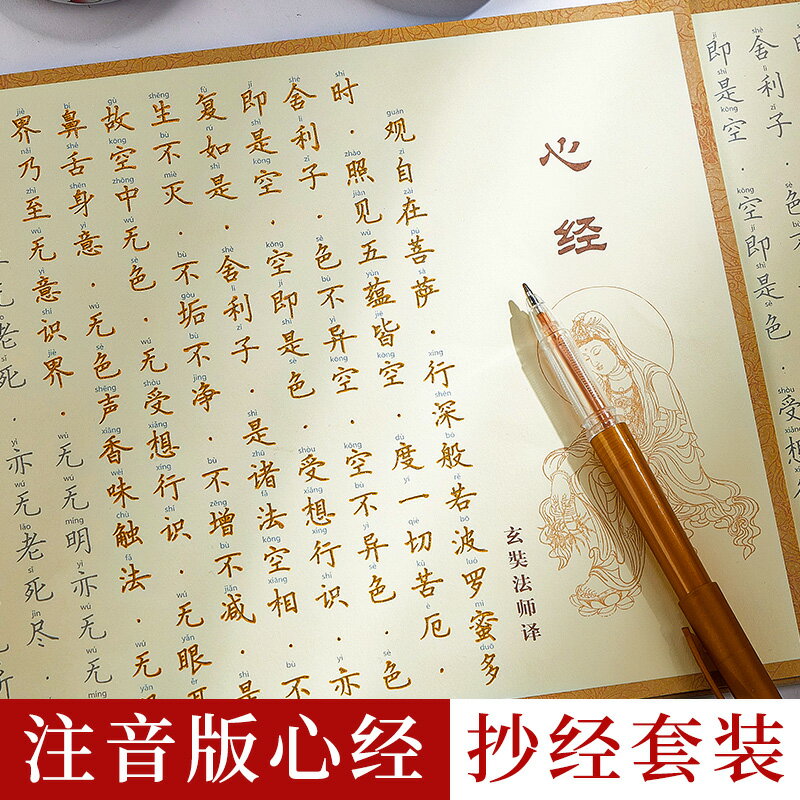 心经
玄奘法师译
观自在菩萨．行深般若波罗蜜多
时．照见五蕴皆空．度一切苦厄．
舍利子．色不异空．空不异色．色
即是空．空即是色．受想行识．亦
复如是．舍利子．是诸法空相．不
生不灭．不垢不净．不增不减．是
故空中无色．无受想行识．无眼耳
鼻舌身意．无色声香味触法．无
界乃至无意识界．无无明亦无无
老死．亦无老死尽．
舍利子．色不
即是空．空即是色．受想
注音版心经
抄经套装